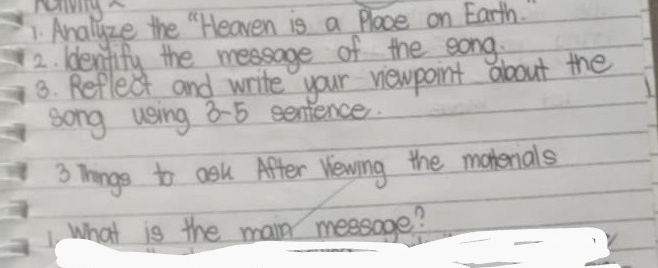 Activity 2
1. Analyze the "Heaven is a Place on Earth."
2. Identify the message of the song.
3. Reflect and write your viewpoint about the
song using 3-5 sentence.
3 Things to ask After Viewing the materials
1. What is the main message?